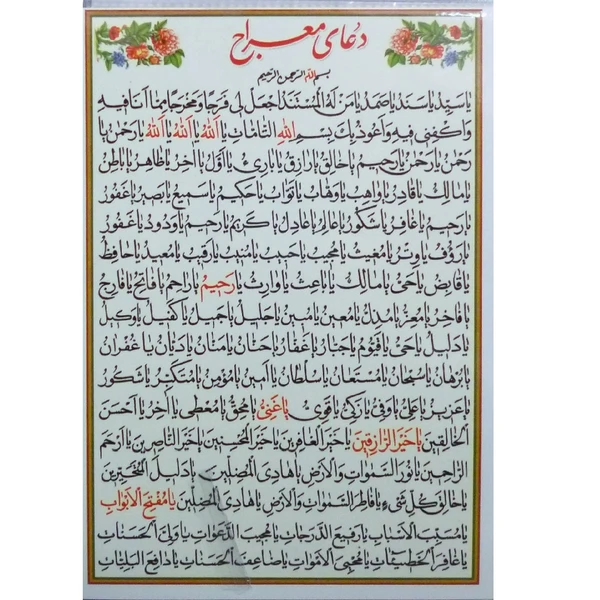 دعای معراج
بسم الله الرحمن الرحیم
یا سید یا سند یا صمد یا من له المستند اجعل لی فرجا و مخرجا مما انا فیه
واکفنی فیه و اعوذ بک بسم الله التامات یا الله یا الله یا الله یا رحمن یا
رحمن یا رحمن یا رحیم یا خالق یا رازق یا باری یا اول یا اخر یا ظاهر یا باطن
یا مالک یا قادر یا واهب یا وهاب یا تواب یا حکیم یا سمیع یا بصیر یا غفور
یا رحیم یا غافر یا شکور یا عالم یا عادل یا کریم یا رحیم یا ودود یا غفور
یا رؤف یا وتر یا مغیث یا مجیب یا حبیب یا منیب یا رقیب یا معید یا حافظ
یا قابض یا حی یا مالک یا باعث یا وارث یا رحیم یا راحم یا فاتح یا فارج
یا فاخر یا معز یا مذل یا معین یا مبین یا جلیل یا جمیل یا کفیل یا وکیل
یا دلیل یا حی یا قیوم یا جبار یا غفار یا حنان یا منان یا دیان یا غفران
یا برهان یا سبحان یا مستعان یا سلطان یا امین یا مؤمن یا متکبر یا شکور
یا عزیز یا علی یا وفی یا زکی یا قوی یا غنی یا محق یا معطی یا آخر یا احسن
الخالقین یا خیر الرازقین یا خیر الغافرین یا خیر المحسنین یا خیر الناصرین یا ارحم
الراحمین یا نور السموات والارض یا هادی المضلین یا دلیل المتحیرین
یا خالق کل شیء یا فاطر السموات والارض یا هادی المضلین یا مفتح الابواب
یا مسبب الاسباب یا رفیع الدرجات یا مجیب الدعوات یا ولی الحسنات
یا غافر الخطیئات یا محیی الاموات یا ضاعف الحسنات یا دافع البلیات